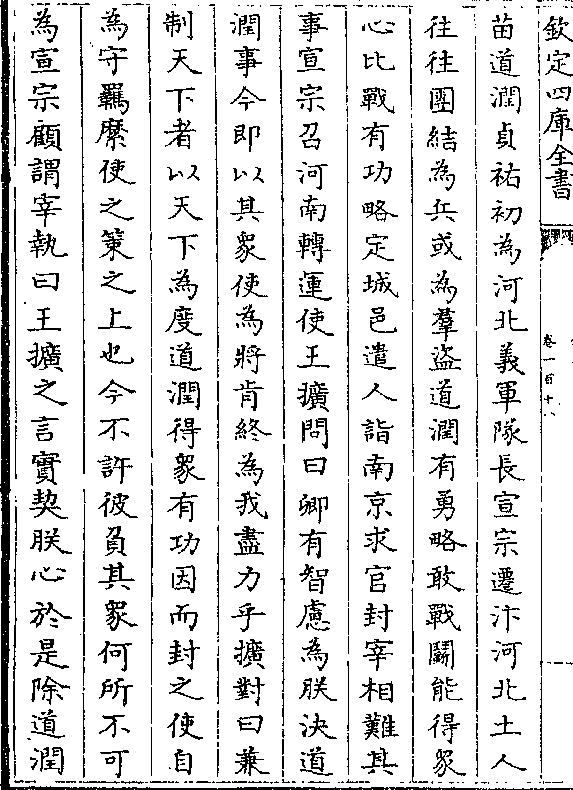 欽定四庫全書
卷一百十八
苗道潤貞祐初為河北義軍隊長宣宗遷汴河北土人
往往團結為兵或為羣盗道潤有勇略敢戰鬭能得衆
心比戰有功略定城邑遣人詣南京求官封宰相難其
事宣宗召河南轉運使王擴問曰卿有智慮為朕決道
潤事今即以其衆使為將肯終為我盡力乎擴對曰兼
制天下者以天下為度道潤得衆有功因而封之使自
為守羈縻使之策之上也今不許彼負其衆何所不可
為宣宗顧謂宰執曰王擴之言實契朕心於是除道潤